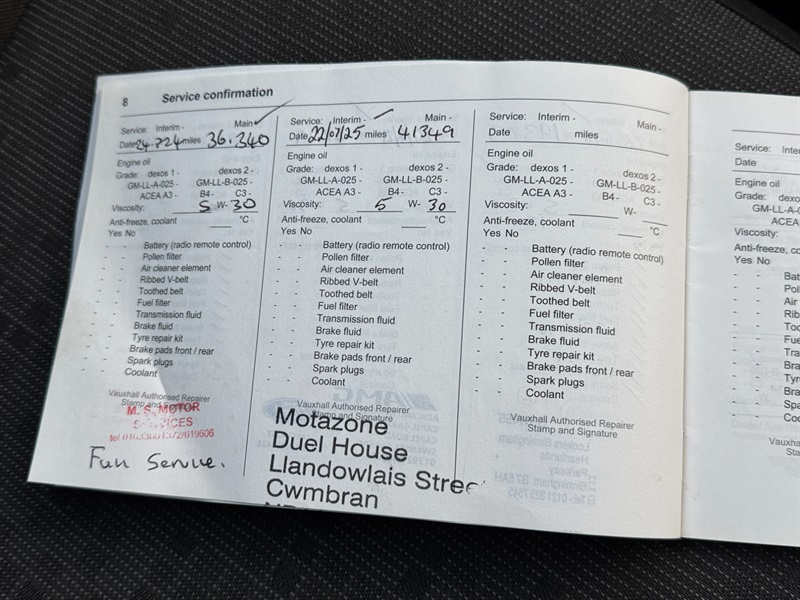 8 Service confirmation
Service: Interim - Main -
Date 24.7.24 miles 36.340
Engine oil
Grade: dexos 1 - dexos 2 -
GM-LL-A-025 - GM-LL-B-025 -
ACEA A3 - B4- C3 -
Viscosity: 5 W- 30
Anti-freeze, coolant °C
Yes No
- - Battery (radio remote control)
- - Pollen filter
- - Air cleaner element
- - Ribbed V-belt
- - Toothed belt
- - Fuel filter
- - Transmission fluid
- - Brake fluid
- - Tyre repair kit
- - Brake pads front / rear
- - Spark plugs
- - Coolant
Vauxhall Authorised Repairer
Stamp and Signature
M. S. MOTOR
SERVICES
Full Service.
Service: Interim - Main -
Date 22/07/25 miles 41349
Engine oil
Grade: dexos 1 - dexos 2 -
GM-LL-A-025 - GM-LL-B-025 -
ACEA A3 - B4- C3 -
Viscosity: 5 W- 30
Anti-freeze, coolant °C
Yes No
- - Battery (radio remote control)
- - Pollen filter
- - Air cleaner element
- - Ribbed V-belt
- - Toothed belt
- - Fuel filter
- - Transmission fluid
- - Brake fluid
- - Tyre repair kit
- - Brake pads front / rear
- - Spark plugs
- - Coolant
Vauxhall Authorised Repairer
Stamp and Signature
Motazone
Duel House
Llandowlais Stree
Cwmbran
Service: Interim - Main -
Date miles
Engine oil
Grade: dexos 1 - dexos 2 -
GM-LL-A-025 - GM-LL-B-025 -
ACEA A3 - B4- C3 -
Viscosity: W-
Anti-freeze, coolant °C
Yes No
- - Battery (radio remote control)
- - Pollen filter
- - Air cleaner element
- - Ribbed V-belt
- - Toothed belt
- - Fuel filter
- - Transmission fluid
- - Brake fluid
- - Tyre repair kit
- - Brake pads front / rear
- - Spark plugs
- - Coolant
Vauxhall Authorised Repairer
Stamp and Signature
Service: Inte
Date
Engine oil
Grade: dexos
GM-LL-A-0
ACEA
Viscosity:
Anti-freeze, co
Yes No
- - Bat
- - Poll
- - Air
- - Rib
- - Too
- - Fue
- - Tra
- - Bra
- - Tyr
- - Bra
- - Sp
- - Co
Vauxha
Sta